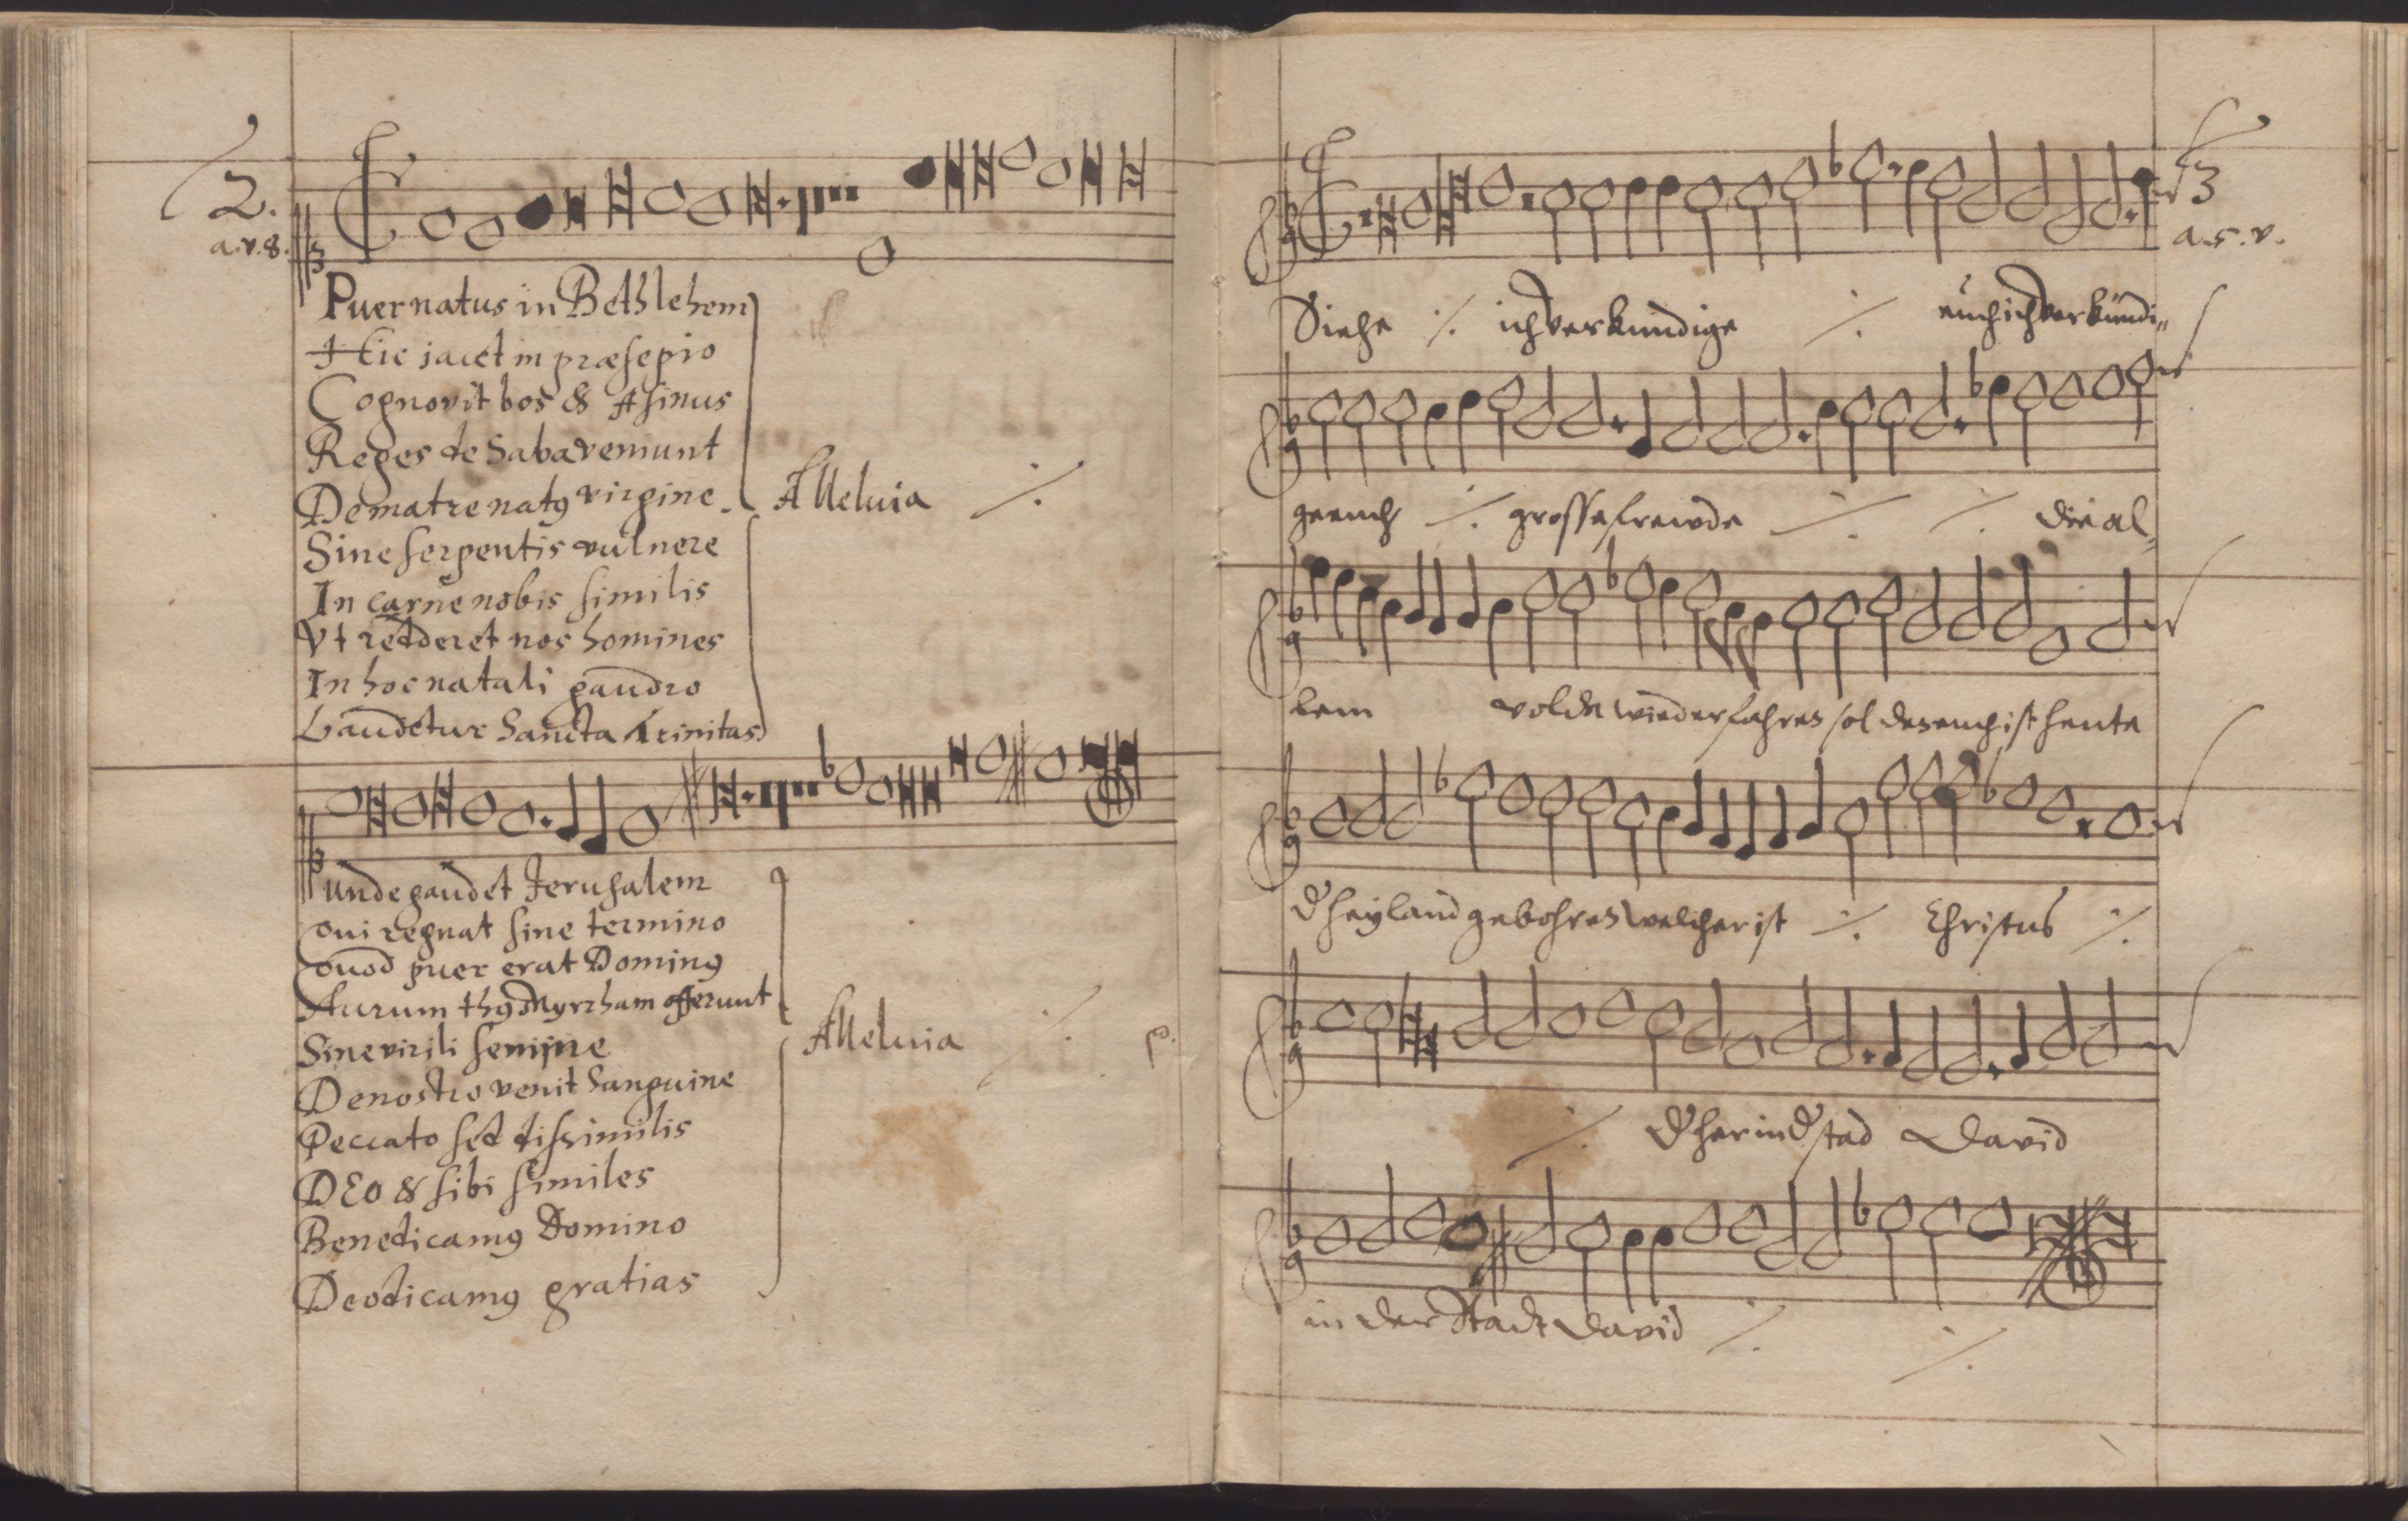 2.
a. v. 8.
Puer natus in Bethlehem
Hic jacet in præsepio
Cognovit bos & Asinus
Reges de Saba venniunt
De matre natꝰ virgine
Alleluia ./.
Sine serpentis vulnere
In carne nobis similis
Vt redderet nos homines
In hoc natali gaudio
Laudetur Sancta Trinitas
Unde gaudet Jerusalem
Qui regnat sine termino
Quod puer erat Dominꝰ
Aurum thꝰ Myrrham offerunt
Sine virili semine
Alleluia ./.
De nostro venit Sanguine
Peccato sed dissimilis
DEO & sibi similes
Benedicamꝰ Domino
Deo dicamꝰ gratias
3
a. 5. v.
Siehe ./. ich verkündige ./. euch ich verkündi⸗
ge euch ./. grosse freude ./. ./. die al⸗
lem volck wiederfahren sol den euch ist heute
d' heyland gebohren welcher ist ./. Christus ./.
./. d' her in d' stad David
in der Stadt David ./. ./.